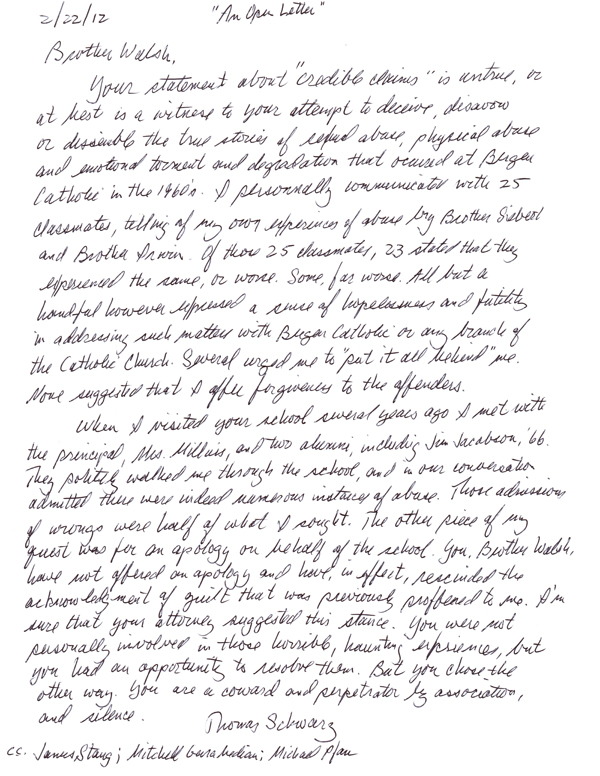 2/22/12 "An Open Letter"
Brother Walsh,
Your statement about "credible claims" is untrue, or
at best is a witness to your attempt to deceive, disavow
or dissemble the true stories of sexual abuse, physical abuse
and emotional torment and degradation that occured at Bergen
Catholic in the 1960s. I personally communicated with 25
classmates, telling of my own experiences of abuse by Brother
and Brother Irwin. Of those 25 classmates, 23 stated that they
experienced the same, or worse. Some, far worse. All but a
handful however expressed a sense of hopelessness and futility
in addressing such matters with Bergen Catholic or any branch of
the Catholic Church. Several urged me to "put it all behind" me.
None suggested that I offer forgiveness to the offenders.
When I visited your school several years ago I met with
the principal, Mrs. and two alumni, including Jim Jacobson, '66.
They politely walked me through the school, and in our conversation
admitted there were indeed numerous instances of abuse. Those admissions
of wrongs were half of what I sought. The other piece of my
quest was for an apology on behalf of the school. You, Brother Walsh,
have not offered an apology and have, in effect, rescinded the
acknowledgment of guilt that was previously proffered to me. I'm
sure that your attorney suggested this stance. You were not
personally involved in those horrible, haunting experiences, but
you had an opportunity to resolve them. But you chose the
other way. You are a coward and perpetrator by association,
and silence.
Thomas Schwarz
cc. James Stang; Mitchell Garabedian; Michael Pfau